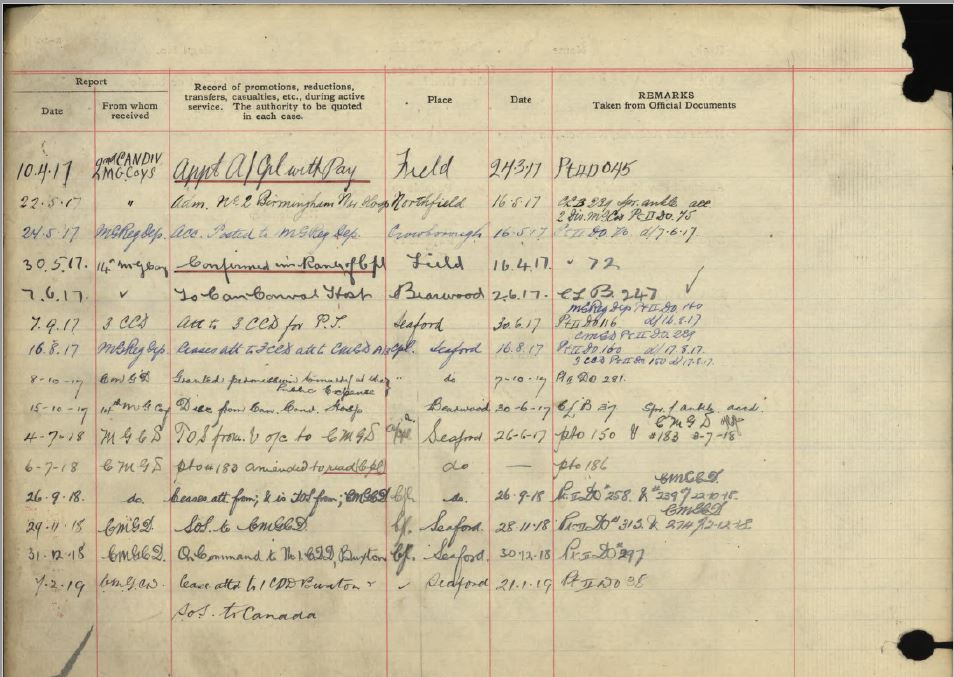 Report
Record of promotions, reductions,
transfers, casualties, etc., during active
service. The authority to be quoted
in each case.
Date
From whom
received
Place
Date
REMARKS
Taken from Official Documents
10.4.17 2nd CAN DIV M.G. COYS Appt A/Cpl with Pay Field 24.3.17 Pt II D045
22.5.17 " Adm. No 2 Birmingham War Hosp Northfield 16.5.17 CCB 229 spr. ankle acc
2 Div. M.G.Co Pt II DO. 75
24.5.17 M.G. Reg Dep. Acc. Posted to M.G. Reg Dep. Crowborough 16.5.17 Pt II DO. d/7.6.17.
30.5.17. 14th M G Coy Confirmed in Rank of Cpl Field 16.4.17. " 72
7.6.17. " To Can Conval Hosp Bearwood 2.6.17. CL B. 247
M.G. Reg Dep Pt II DO 140
7.9.17 3 CCD Att to 3 CCD for P.T. Seaford 30.6.17 Pt II DO 116 d/16.8.17
CMGD Pt II DO. 229
16.8.17 M.G. Reg Dep. Ceases att to 3 CCD att to CMGD A/Cpl. Seaford 16.8.17 Pt II DO. 160 d/17.8.17.
3 CCD Pt II DO 150 d/17.8.17.
8-10-17 CMGD Granted permission to marry at the
Public Expense " do 7-10-17 Pt II DO 281.
15-10-17 14th M G Coy Disc from Can. Conv. Hosp Bearwood 30-6-17 CL B 37 Spr. ankle accid.
4-7-18 M G C D T.O.S from o/c to C M G D Seaford 26-6-17 pto 150 #183 3-7-18
C M G D
6-7-18 C M G D pto #183 amended to read Cpl do — pto 186
26.9.18. do. Ceases att from; & is TOS from; CMGCD Cpl. do. 26.9.18 Pt. II DO #258. & #239 12-10-18.
CMGCD.
29.11.18 CMGD. S.O.S. to CMGCD Cpl. Seaford 28.11.18 Pt. II DO #313. & 274 2-12-18
CMGCD
31.12.18 CMGCD. On Command to No 1 CDD, Buxton Cpl. Seaford. 30.12.18 Pt. II DO #297
7.2.19 Cease attd to 1 CDD Buxton & Seaford 21.1.19 Pt II DO 38
S.O.S. to Canada